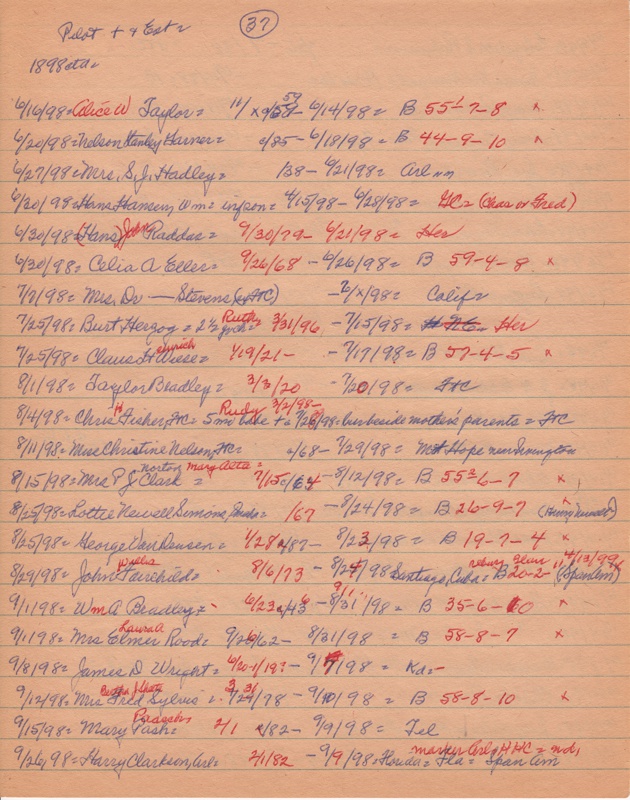 37
Pilot + & Est =
1898 etd =
6/16/98 = Alice W Taylor = 11/ x c/58 59 - 6/14/98 = B 55-7-8 x
6/20/98 = Nelson Stanley Harner = c/85 - 6/18/98 = B 44-9-10 x
6/27/98 = Mrs. S. J. Hadley = /38 - 6/21/98 = Arl
6/30/98 = Hans Hansen, Wm = infson = 4/15/98 - 6/28/98 = HC = (Chas or Fred)
6/30/98 = (Hans) John Raddas = 9/30/79 - 6/21/98 = Her
6/30/98 = Celia A Eller = 9/26/68 - 6/26/98 = B 59-4-8 x
7/2/98 = Mrs. Dr — Stevens (ex HC) - 6/x/98 = Calif =
7/25/98 = Burt Herzog = 2 1/2 Ruth 3/31/96 - 7/15/98 = Her
7/25/98 = Claus H Wiese = enrich 1/19/21 - - 7/17/98 = B 57-4-5 x
8/1/98 = Taylor Bradley = 3/3/20 - 7/20/98 = HC
8/4/98 = Chris H Fisher, HC = 5 mo babe Rudy 3/2/98 - + 7/26/98 = bur beside mother's parents = HC
8/11/98 = Miss Christine Nelson, HC = c/68 - 7/29/98 = Mt Hope near
8/15/98 = Mrs P J Clark norton mary Asta = = 7/15 c/64 - 8/12/98 = B 55-6-7 x
8/25/98 = Lottie Newell Simons, = /67 - 8/24/98 = B 26-9-7 x
8/25/98 = George VanDeusen = 1/28 c/87 - 8/23/98 = B 19-7-4 x
8/29/98 = John Willis Fairchild = 8/6/73 - 8/24/98 Santiago, Cuba = B 20-2- (Span Am) 4/13/99 x
9/1/98 = Wm A Bradley = 6/23 c/43 - 8/31/98 = B 35-6-10 x
9/1/98 = Mrs Elmer Laura A Rood = 9/26/62 - 8/31/98 = B 58-8-7 x
9/8/98 = James D Wright = 6/20-1/19? - 9/7/98 = Ka =
9/12/98 = Mrs Fred Sylvis = 3/31 /98 - 9/10/98 = B 58-8-10 x
9/15/98 = Mary Paasch Tash = 2/1 c/82 - 9/9/98 = Tel
9/26/98 = Harry Clarkson, Arl = 2/1/82 - 9/9/98 = Florida = Fla = Span Am marker Arl; HHC = nd,